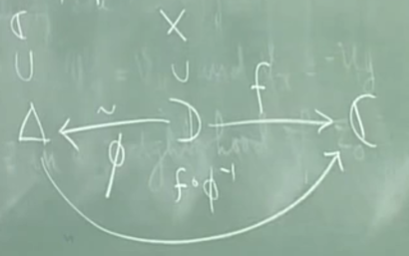 ℂ X
∪ ∪
Δ ←~ D →f ℂ
φ f∘φ⁻¹